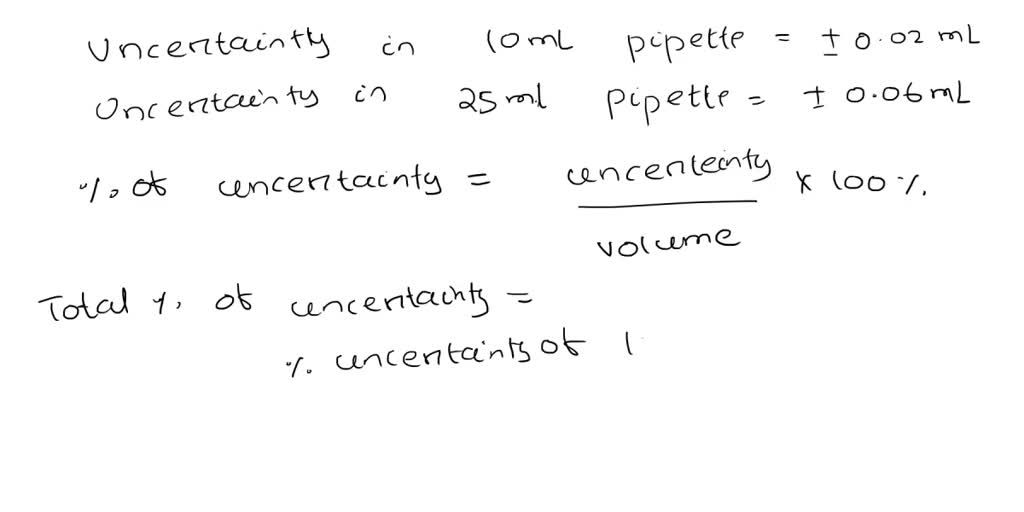 Uncertainty in 10 mL pipette = ± 0.02 mL
Uncertainty in 25 ml pipette = ± 0.06 mL
% of uncertainty = uncerteinty / volume × 100 %
Total % of uncertainty =
% uncertainty of 1